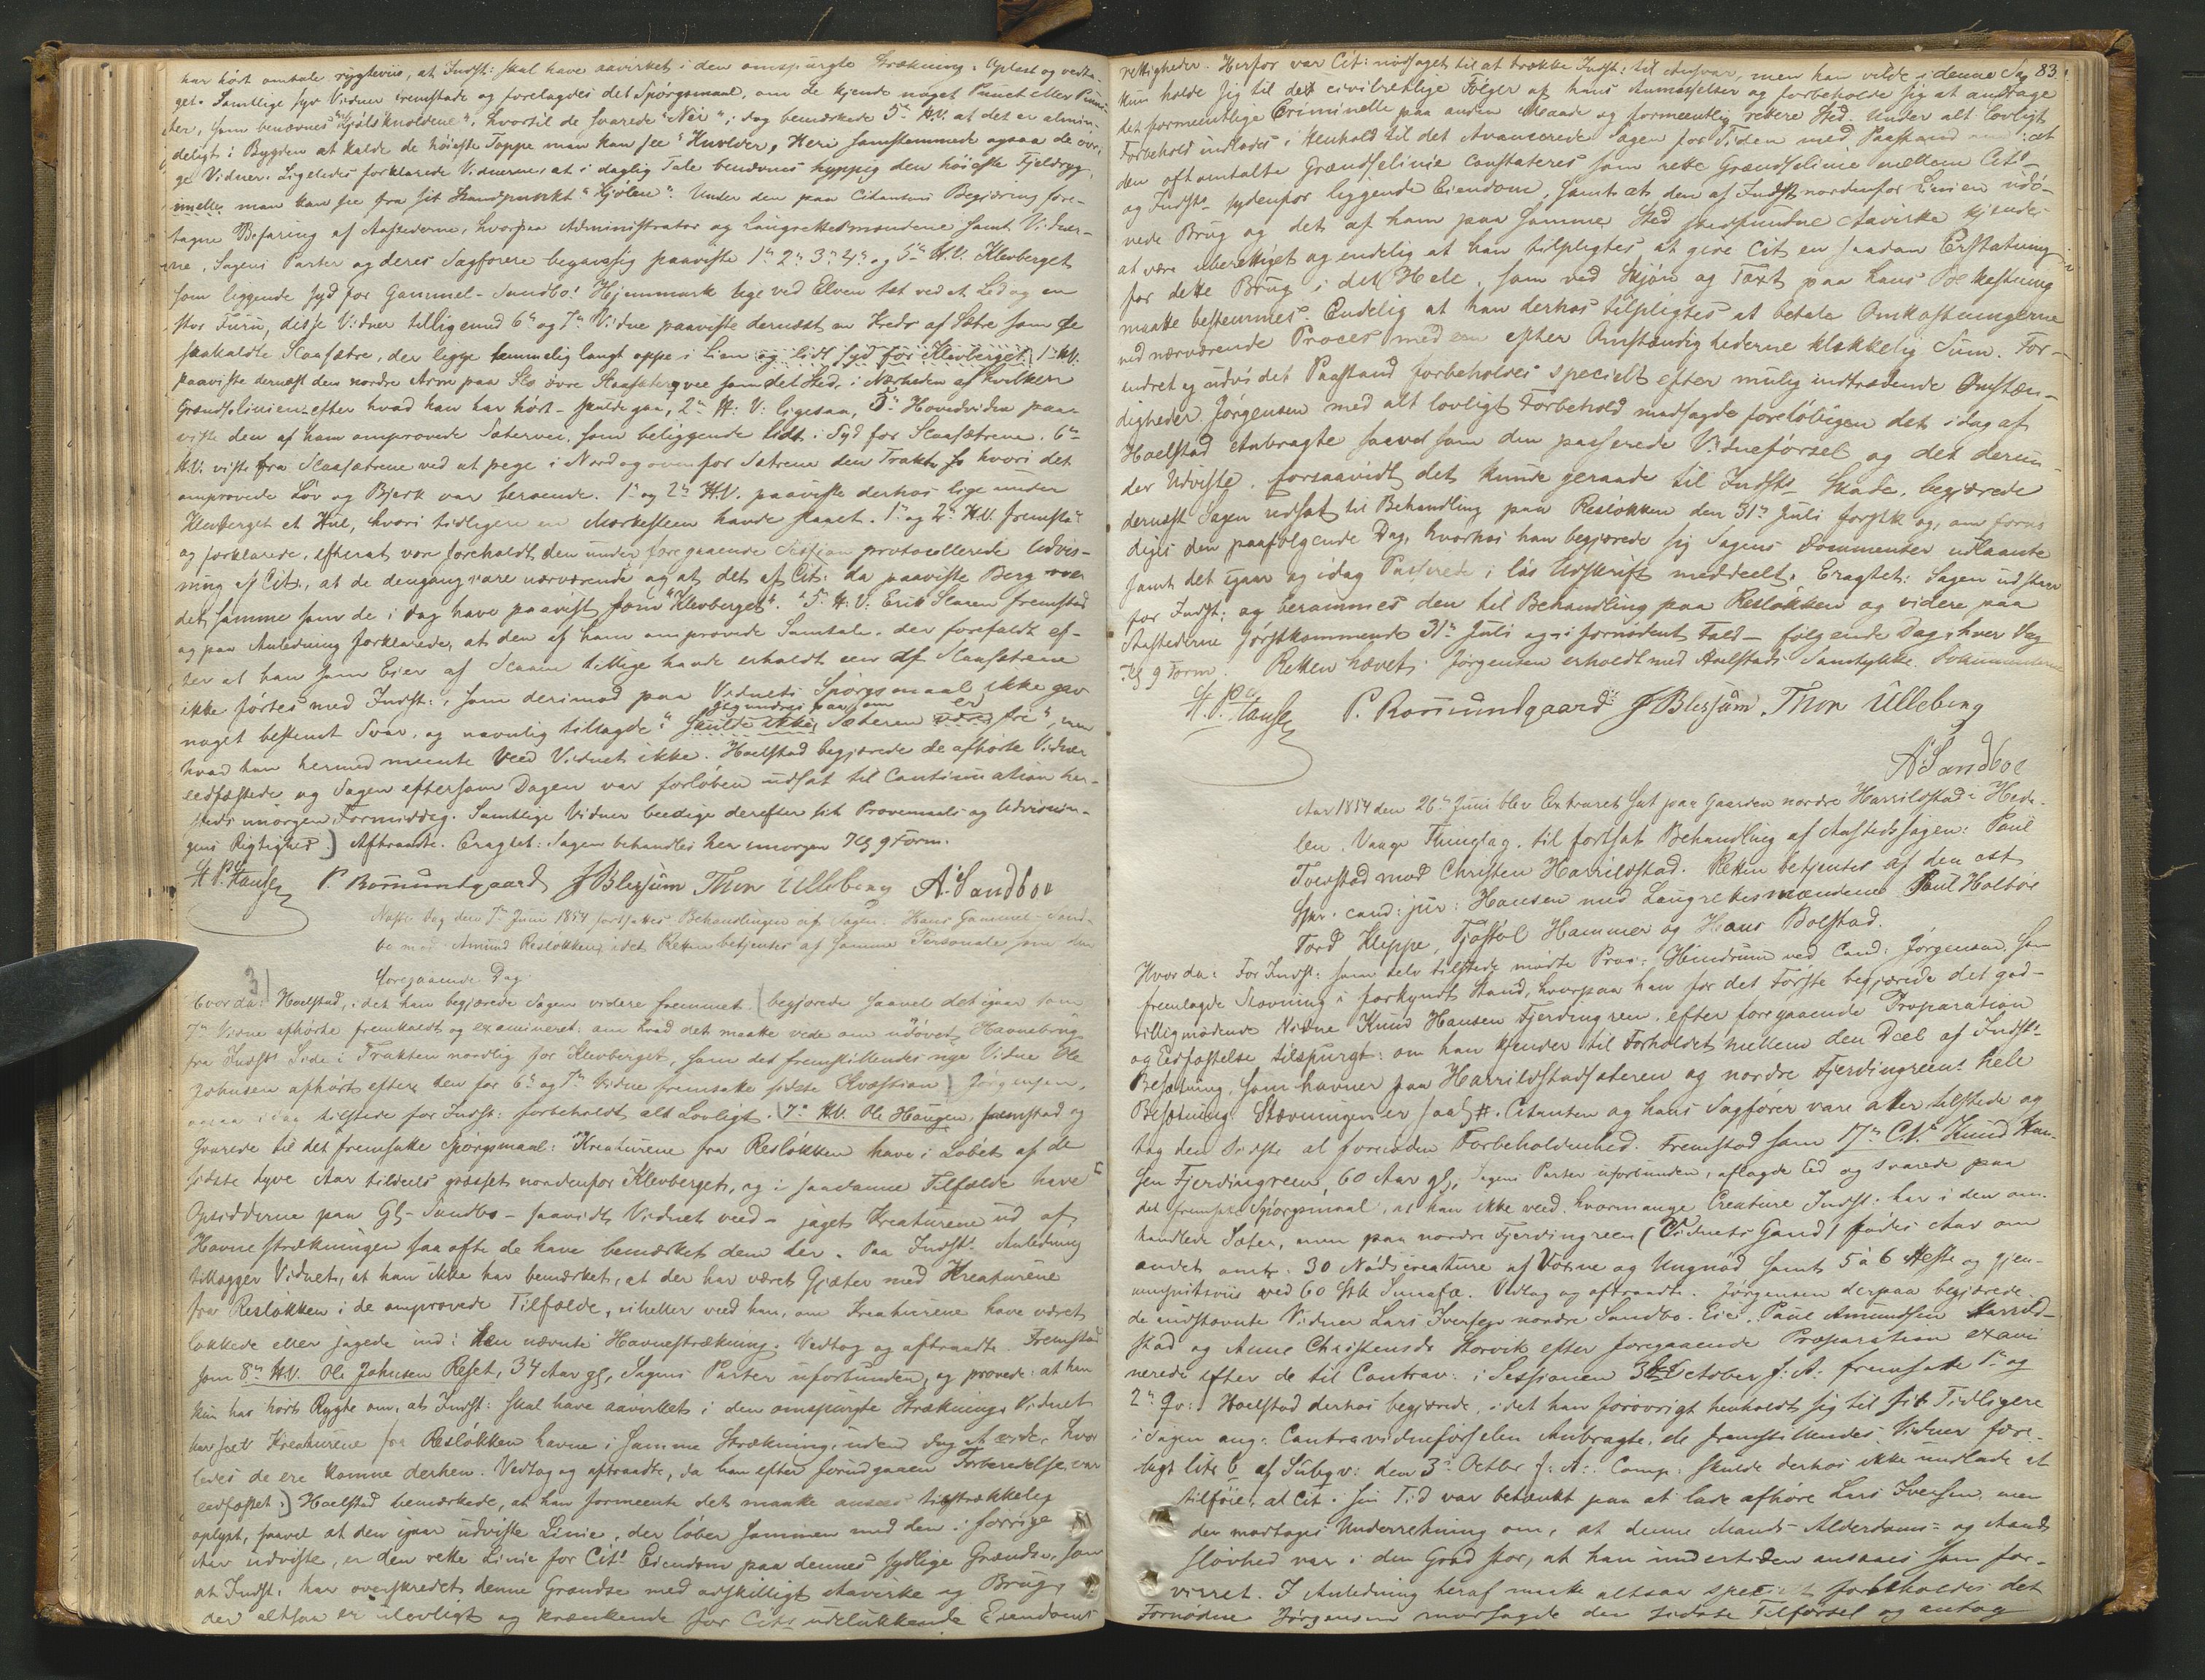 har hört omtale rygteviis, at Indst: skal have aavirket i den omspurgte Strækning. Oplæst og vedta-
get. Samtlige syv Vidner fremstode og forelagdes det Spørgsmaal, om de kjende noget Punct eller Punc-
ter, som benævnes "Kjølsknoldene", hvortil de svarede "Nei"; dog bemærkede 5te H.V. at det er almin-
deligt i Bygden at kalde de høieste Toppe man kan see "Knolder", Heri samstemmede ogsaa de øvri-
ge Vidner. Ligeledes forklarede Vidnerne, at i daglig Tale benævnes hyppig den høieste Fjeldryg,
man kan see fra sit Standpunkt "Kjølen". Under den paa Citantens Begjæring fore-
tagne Befaring af Aastederne, hvorpaa Administrator og Laugrettesmændene samt Vidner-
ne, Sagens Parter og deres Sagførere begave sig paaviste 1te 2de 3de 4de og 5te H.V. Klevberget
som liggende syd for Gammel-Sandbo's Hjemmark lige ved Elven tæt ved et Led og en
stor Furu, disse Vidner tilligemed 6te og 7de Vidne paaviste dernæst en Kreds af Sætre som de
saakaldte Slaasætre, der ligge temmelig langt oppe i Lien og lidt syd for Klevberget. 1te H.V.
paaviste dernæst den nordre Arm paa Slo øvre Slaasætervei som det Sted, i Nærheden af hvilken
Grændselinien efter hvad han har hørt - skulde gaa, 2de H: V: ligesaa, 3die Hovedvidne paa-
viste den af ham omprovede Sætervei, som beliggende lidt i Syd for Slaasætrene. 6te
H.V. viste fra Slaasætrene ved at pege i Nord og ovenfor Sætrene den Trakt hvori det
omprovede Løv og Bjerk var beroende. 1te og 2de H.V. paaviste derhos lige under
Klevberget et Hul, hvori tidligere en Mærkesteen havde staaet. 1te og 2de H.V. fremstod
og forklarede, efterat var foreholdt den under foregaaende Session protocollerede Udvis-
ning af Cit:, at de dengang vare nærværende og at det af Cit: da paaviste Berg var
det samme som de i dag have paavist som "Klevberget". 5te H: V: Erik Slaaen fremstod
og paa Anledning forklarede, at den af ham omprovede Samtale, der forefaldt ef-
ter at han som Eier af Slaaen tillige havde erholdt een af Slaasætrene
ikke førtes med Indst:, som derimod paa Vidnets Spørgsmaal ikke gav
noget bestemt Svar, og navnlig tillagde: "Skulde ikke Sæteren være fri", men
hvad han hermed meente veed Vidnet ikke. Hoelstad begjærede de afhørte Vidner
eedfæstede og Sagen eftersom Dagen var forløben udsat til Continuation her-
steds imorgen Formiddag. Samtlige Vidner beedige derefter sit Provemaals og Udvisnin-
gens Rigtighed.) Aftraadte. Eragtet: Sagen behandles her imorgen Kl 9 Form.
H. P. Hansen P. Romundgaard J Blessum Thor Ulleberg A. Sandboe
Næste Dag den 7de Juni 1854 fortsattes Behandlingen af Sagen: Hans Gammel-Sand-
bo mod Amund Resløkken, idet Retten betjentes af samme Personale som den
foregaaende Dag
3)
Hvorda: Hoelstad, idet han begjærede Sagen videre fremmet (begjærede saavel det igaar som
7de Vidne afhørte fremkaldt og examineret: om hvad det maatte vide om udøvet Havnebrug
fra Indst's Side i Trakten nordlig for Klevberget, som det fremstillendes nye Vidne Ole
Johnsen afhørt efter den for 6te og 7de Vidne fremsatte sidste Kvæstion) Jørgensen,
ogsaa idag tilstede for Indst: forbeholdt alt Lovligt. (7de H.V. Ole Haugen, fremstod og
svarede til det fremsatte Spørgsmaal: Kreaturene fra Resløkken have i Løbet af de
sidste tyve Aar tildeels græsset nordenfor Klevberget, og i saadanne Tilfælde have
Opsidderne paa Gl-Sandbo - saavidt Vidnet veed - jaget Kreaturene ud af
Havnestrækningen saa ofte de have bemærket dem der. Paa Indst's Anledning
tillægger Vidnet, at han ikke har bemærket, at der har været Gjæter med Kreaturene
fra Resløkken i de omprovede Tilfælde, eiheller veed han, om Kreaturene have været
lokkede eller jagede ind i den nævnte Havnestrækning. Vedtog og aftraadte. Fremstod
som 8de H.V. Ole Johnsen Reset, 34 Aar gl, Sagens Parter uforbunden, og provede: at han
kun har hørt Rygte om, at Indst: skal have aavirket i den omspurgte Strækning. Vidnet
har seet Kreaturene fra Resløkken havne i samme Strækning, uden dog at vide, hvor
ledes de ere komne derhen. Vedtog og aftraadte, da han efter forudgaaen Forberedelse var
eedfæstet.) Hoelstad bemærkede, at han formeente det maatte ansees tilstrækkelig
oplyst, saavel at den igaar udviste Linie, der løber sammen med den i forrige
Aar udviste, er den rette Linie for Cit's Eiendom paa dennes sydlige Grændse, som
at Indst: har overskredet denne Grændse med adskilligt Aavirke og Brug,
der altsaa er ulovligt og krænkende for Cits udelukkende Eiendoms
83.
rettigheder. Herfor var Cit: nødsaget til at trække Indst: til Ansvar, men han vilde i denne Sag
kun holde sig til det civilretlige Følger af hans Anmasselser og forbeholde sig at andrage
det formeentlige Criminelle paa anden Maade og formeentlig rettere Sted. Under alt lovligt
Forbehold indlodes i Henhold til det Avancerede Sagen for Tiden med Paastand : at
den oftomtalte Grændselinie constateres som rette Grændselinie mellem Cit's
og Indst's sydenfor liggende Eiendome, samt at den af Indst: nordenfor Linien udø-
vede Brug og det af ham paa samme Sted stedfundne Aavirke kjendes
at være uberettiget og endelig at han tilpligtes at give Cit en saadan Erstatning
for dette Brug i det Hele, som ved Skjøn og Taxt paa hans Bekostning
maatte bestemmes. Endelig at han derhos tilpligtes at betale Omkostningerne
ved nærværende Proces med en efter Omstændighederne klækkelig Sum. For-
andret og udvidet Paastand forbeholdes specielt efter mulig indtrædende Omstæn-
digheder. Jørgensen med alt lovligt Forbehold modsagde foreløbigen det idag af
Hoelstad Anbragte saavelsom den passerede Vidneførsel og det derun-
der Udviste, forsaavidt det kunde geraade til Indst's Skade, begjærede
dernæst Sagen udsat til Behandling paa Resløkken den 31te Juli førstk og, om fornø-
diges den paafølgende Dag, hvorhos han begjærede sig Sagens Documenter udlaante
samt det igaar og idag Passerede i lös Udskrift meddeelt. Eragtet: Sagen udstaar
for Indst: og berammes den til Behandling paa Resløkken og videre paa
Aastederne førstkommende 31te Juli og i fornødent Fald - følgende Dag, hver Dag
Kl 9 Form. Retten hævet. Jørgensen erholdt med Hoelstads Samtykke Dokumenterne
H. P. Hansen P. Romundgaard J Blessum Thor Ulleberg
A Sandboe
Aar 1854 den 26de Juni blev Extraret sat paa Gaarden nordre Harrildstad i Heda-
len, Vaage Thinglag, til fortsat Behandling af Aastedssagen: Paul
Tvedstad mod Christen Harrildstad. Retten betjentes af den cst
Skr: cand: jur: Hansen med Laugrettesmændene Paul Holtør
Tord Kleppe, Tjøstol Hammer og Hans Bolstad.
Hvorda: For Indst: som selv tilstede mødte Proc: Hindrum ved Cand: Jørgensen, som
fremlagde Stævning i forkyndt Stand, hvorpaa han for det Første begjærede det god-
villigmødende Vidne Knud Hansen Fjerdingreen, efter foregaaende Præparation
og Eedfæstelse tilspurgt: om han kjender til Forholdet mellem den Deel af Indst's
Besætning, som havner paa Harrildstadsæteren og nordre Fjerdingreens hele
Besætning. Stævningen er saal #. Citanten og hans Sagfører vare atter tilstede og
tog den Sidste al fornøden Forbeholdenhed. Fremstod som 17de C.V. Knud Han-
sen Fjerdingreen, 60 Aar gl, Sagens Parter uforbunden, aflagde Eed og svarede paa
det fremsatte Spørgsmaal, at han ikke veed, hvormange Creature Indst: har i den om-
handlede Sæter, men paa nordre Fjerdingreen (Vidnets Gaard) fødes Aar om
andet omtr. 30 Nødscreature af Voxne og Ungnød samt 5 à 6 Heste og gjen-
nemsnitsviis ved 60 Stk Smaafæ. Vedtog og aftraadte. Jørgensen derpaa begjærede
de indstævnte Vidner Lars Iversen nordre Sandbo-Eie, Paul Amundsen Harrild-
stad og Anne Christensdr Storvik efter foregaaende Præparation exami-
nerede efter de til Contrav: i Sessionen 3die October f: A: fremsatte 1te og
2de Qv: Hoelstad derhos begjærede, idet han forøvrigt henholdt sig til sit Tidligere
i Sagen ang: Contravidneførselen Anbragte, de fremstillendes Vidner fore-
lagt litr b af Subqv: den 3die Octbr f: A:. Comp: skulde derhos ikke undlade at
tilføie, at Cit: sin Tid var betænkt paa at lade afhøre Lars Iversen, men
der modtoges Underretning om, at denne Mands Alderdoms- og Aands
sløvhed var i den Grad stor, at han undertiden ansaaes som for-
virret. I Anledning heraf maatte altsaa specielt forbeholdes det
Fornødne. Jørgensen modsagde den sidste Tilførsel og antog